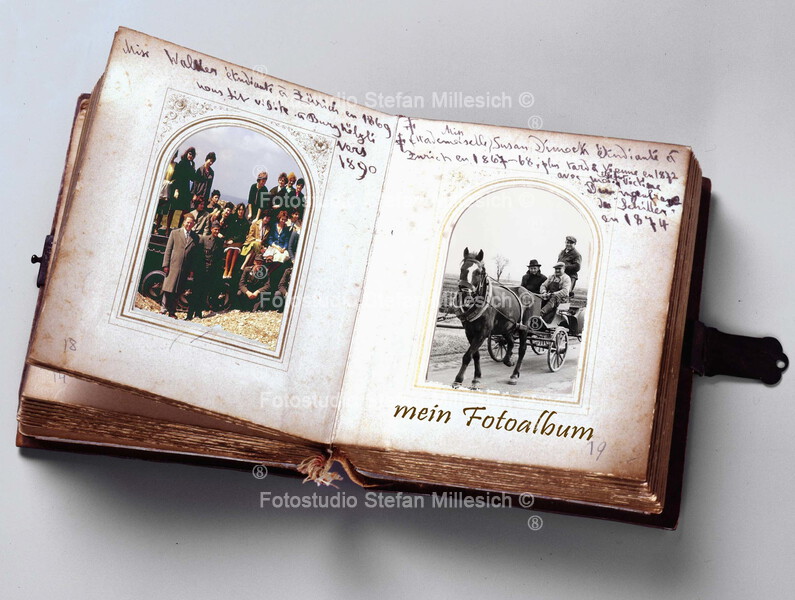 Miss Walker étudiante à Zürich en 1869
nous fit visite à Burghölzli
vers
1890
Miss
Mademoiselle Susan Dimock étudiante à
Zurich en 1867-68, plus tard
avec
en 1872
du Schiller
en 1874
18
mein Fotoalbum
19
Fotostudio Stefan Millesich ©
®
Fotostudio Stefan Millesich ©
®
Fotostudio Stefan Millesich ©
®
Fotostudio Stefan Millesich ©
®
Fotostudio Stefan Millesich ©
®